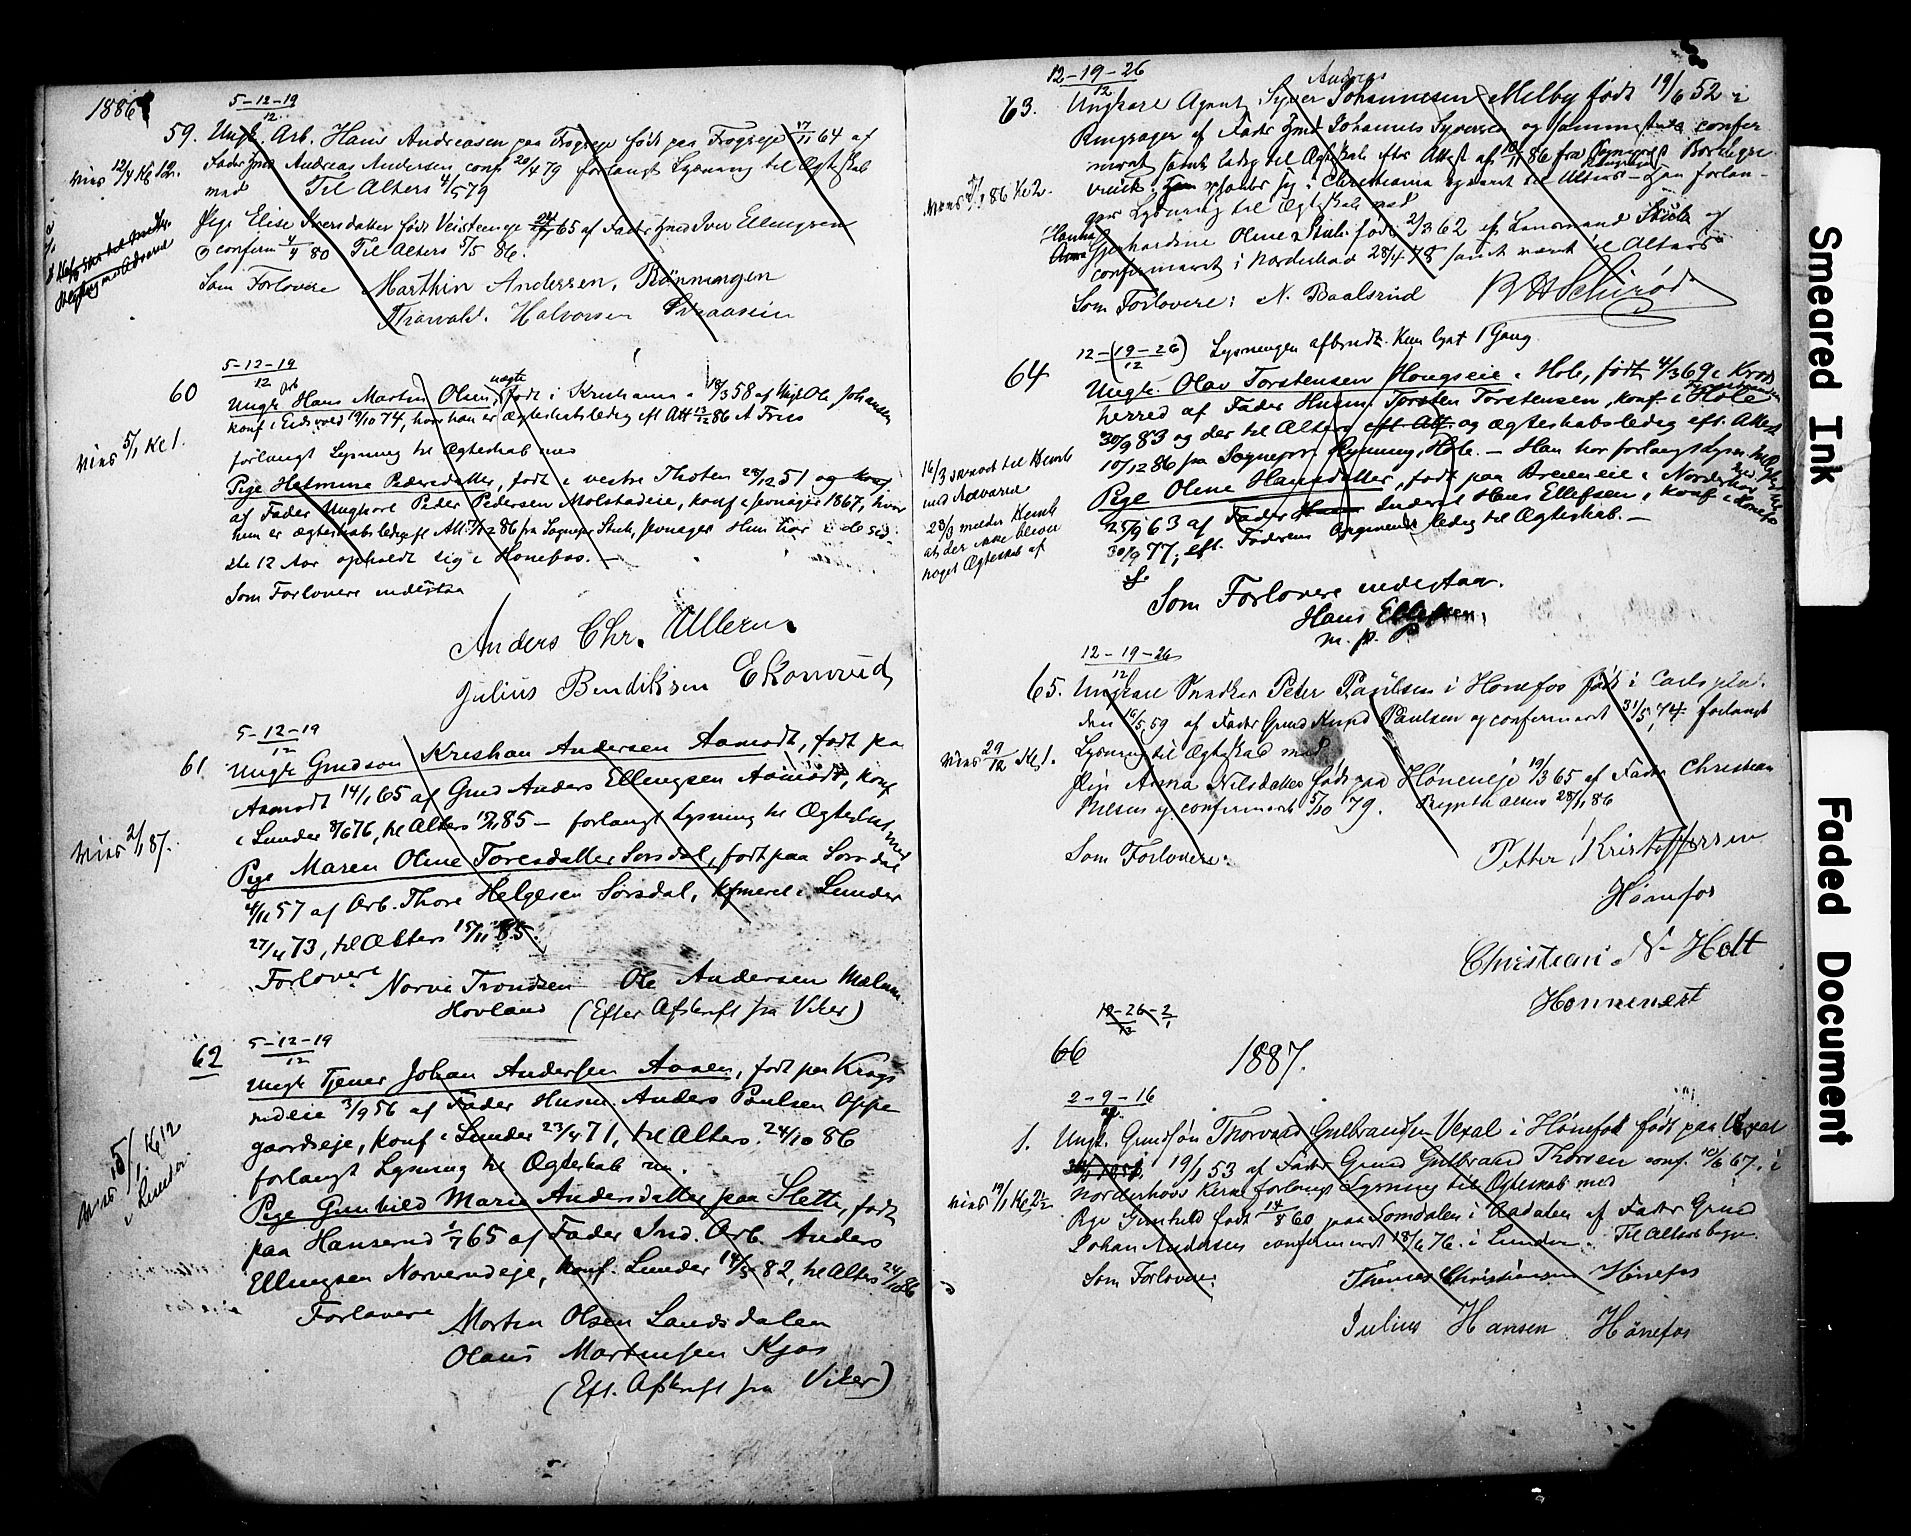 1886
5-12-19
12
59. Ungk. Arb. Hans Andreasen paa Fragseje født paa Fragseje 17/11 64 af
Fader Hmd Andreas Andersen conf 20/4 79 forlangt Lysning til Ægteskab
med Til Alters 4/5 79
Pige Elise Iversdatter født Veisteneje 65 af Fader Hmd Iver Ellingsen
confirm 4/4 80 Til Alters 5/5 86.
Som Forlovere Marthin Andersen, Rönningen
Thorvald Halvorsen
Vies 12/4 Kl 12.
5-12-19
12
60 Ungk Arb Hans Martin Olsen, uægte født i Kristiania 18/3 58 af Ungk Ole Johansen
konf i Eidsvold 19/10 74, hvor han er Ægteskabsledig eft Att 13/12 86 A Friis
forlangt Lysning til Ægteskab med
Pige Helmine Pedersdatter, født i vestre Thoten 28/12 51 og konf
af Fader Ungkarl Peder Pedersen Molstadeie, konf i Jevnager 1867, hvor
hun er Ægteskabsledig eft Att 86 fra Sognepr Stub, Jevnager Hun har i de sid-
ste 12 Aar opholdt sig i Hønefos. -
Som Forlovere indestaa
Anders Chr. Ullern
Julius Bendiksen
Vies 5/1 Kl 1.
5-12-19
12
61 Ungk Gmdsøn Kristian Andersen Aamodt, født paa
Aamodt 14/1 65 af Gmd Anders Ellingsen Aamodt, konf
i Lunder 8/6 76, til Alters 85 - forlangt Lysning til Ægteskab med
Pige Maren Oline Toresdatter Sørsdal, født paa Sørsdal
4/11 57 af Arb. Thore Helgesen Sørsdal, kfmeret i Lunder
27/4 73, til Alters 15/11 85.
Forlovere Narve Trondsen Ole Andersen Mælum
Hovland (Efter Afskrift fra Viker)
Vies 2/1 87.
5-12-19
12
62 Ungk Tjener Johan Andersen Aasen, født paa Krags
rudeie 3/9 56 af Fader Husm. Anders Paulsen Oppe
gaardseje, konf i Lunder 23/4 71, til Alters 24/10 86
forlangt Lysning til Ægteskab m.
Pige Gunhild Marie Andersdatter paa Slette, født
paa Hanserud 1/7 65 af Fader Ind. Arb. Anders
Ellingsen Narverudeje, konf. Lunder 14/5 82, til Alters 24/10 86
Forlovere Morten Olsen Landsdalen
Olaus Martinsen Kjos
(Eft. Afskrift fra Viker)
Vies 5/1 Kl 12
i Lunder.
12-19-26
12
63. Ungkarl Agent Syver Andreas Johannesen Melby født 19/6 52 i
Ringsager af Fader Gmd Johannes Syversen og sammesteds confir
meret samt ledig til Ægteskab efter Attest af 86 fra
opholder sig i Christiania og været til Alters - Han forlan-
ger Lysning til Ægteskab med
Hanna Anna Gjerhardine Oline Stub født 2/3 62 af Lensmand Stub og
confirmeret i Norderhov 28/4 78 samt været til Alters
Som Forlovere: N. Baalsrud
Vies 86 Kl 2.
12-(19-26) Lysningen afbrudt. Kun lyst 1 Gang
12
64 Ungk. Olav Torstensen Hougseie i Hole, født 4/3 69 i Krøds
herred af Fader Husm. Torsten Torstensen, konf. i Hole
30/9 83 og der til Alters eft Att. og Ægteskabsledig eft. Attest
10/12 86 fra Sognepr. Hole. - Han har forlangt Lysn. til Ægteskab med
Pige Oline Hansdatter, født paa i Norderhov
25/9 63 af Fader Inderst Hans Ellefsen, konf. i Hønefos
30/9 77, eft. Faderens Opgivende ledig til Ægteskab. -
Som Forlovere indestaar.
Hans Ellefsen,
m. p. P.
23/3 melder Kemb
at der ikke bliver
noget Ægteskab af
12-19-26
12
65. Ungkarl Snedker Peter Paulsen i Hønefos født i Carls
den 16/5 59 af Fader Gmd Knud Paulsen og confirmeret 31/5 74 forlangt
Lysning til Ægteskab med
Pige Anna Nilsdatter født paa Høneneje 19/3 65 af Fader Christian
Nilsen og confirmeret 5/10 79. 28/11 86
Som Forlovere:
Petter Kristoffersen
Hønefos
Christian N. Holt
Vies 29/12 Kl 1.
19-26-2/1
12
66
1887.
2-9-16
1. Ungk. Gmdsøn Thorvald Gulbrandsen Vexal i Hønefos født paa Vexal
19/1 53 af Fader Gmd Gulbrand Thorsen conf. 10/6 67 i
Norderhovs Kirke forlangt Lysning til Ægteskab med
Pige Gunhild født 14/8 60 paa Somdalen i Aadalen af Fader Gmd
Johan Andersen confirmeret 18/6 76 i Lunder. Til Alters
Som Forlovere: Thomas Christiansen Hönefos
Julius Hansen Hönefos
Smeared Ink
Faded Document